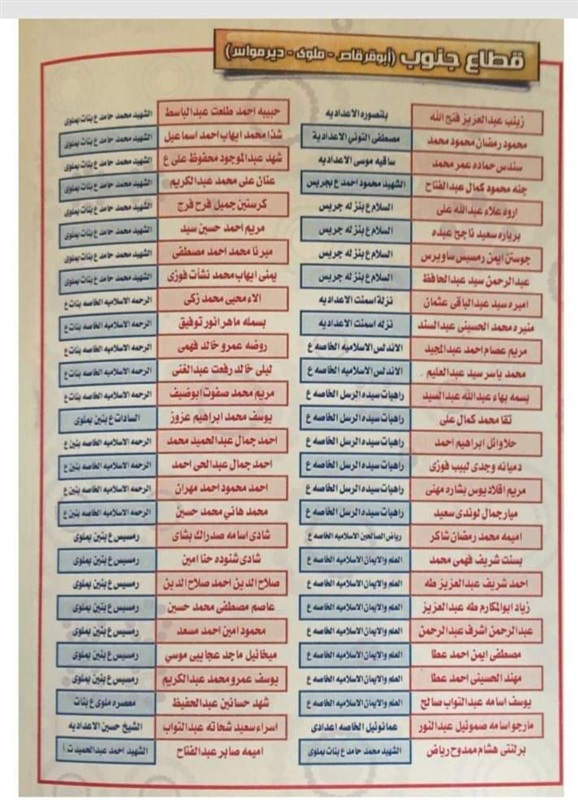 قطاع جنوب (أبوقرقاص - ملوى - ديرمواس)
زينب عبدالعزيز فتح الله بلنصوره الاعداديه
محمود رمضان محمود محمد مصطفى التونى الاعدادية
سندس حماده عمر محمد ساقيه موسى الاعداديه
جنه محمود كمال عبدالفتاح الشهيد محمود احمد ع بجريس
اروه علاء عبدالله على السلام ع بنزله جريس
برباره سعيد ناجح عبده السلام ع بنزله جريس
جوستن ايمن رمسيس ساويرس السلام ع بنزله جريس
عبدالرحمن سيد عبدالحافظ السلام ع بنزله جريس
اميره سيد عبدالباقى عثمان نزلة اسمنت الاعداديه
منيره محمد الحسينى عبدالسند نزله اسمنت الاعداديه
مريم عصام احمد عبدالمجيد الاندلس الاسلاميه الخاصه ع
محمد ياسر سيد عبدالعليم الاندلس الاسلاميه الخاصه ع
بسمه بهاء عبدالله عبدالسيد راهبات سيده الرسل الخاصه ع
تقا محمد كمال على راهبات سيده الرسل الخاصه ع
حلا وائل ابراهيم احمد راهبات سيده الرسل الخاصه ع
دميانه وجدى لبيب فوزى راهبات سيده الرسل الخاصه ع
مريم اقلاديوس بشاره مهنى راهبات سيده الرسل الخاصه ع
ميار جمال لوندى سعيد راهبات سيده الرسل الخاصه ع
اميمه محمد رمضان شاكر رياض الصالحين الاسلاميه الخاصه ع
بسنت شريف فهمى محمد العلم والايمان الاسلاميه الخاصه ع
احمد شريف عبدالعزيز طه العلم والايمان الاسلاميه الخاصه ع
زياد ابوالمكارم طه عبدالعزيز العلم والايمان الاسلاميه الخاصه ع
عبدالرحمن اشرف عبدالرحمن العلم والايمان الاسلاميه الخاصه ع
مصطفى ايمن احمد عطا العلم والايمان الاسلاميه الخاصه ع
مهند الحسينى احمد عطا العلم والايمان الاسلاميه الخاصه ع
يوسف اسامه عبدالنواب صالح العلم والايمان الاسلاميه الخاصه ع
مارجو اسامه صموئيل عبدالنور عمانوئيل الخاصه اعدادى
برلنتى هشام ممدوح رياض الشهيد محمد حامد ع بنات بملوى
حبيبه احمد طلعت عبدالباسط الشهيد محمد حامد ع بنات بملوى
شذا محمد ايهاب احمد اسماعيل الشهيد محمد حامد ع بنات بملوى
شهد عبدالموجود محفوظ على ع الشهيد محمد حامد ع بنات بملوى
عنان على محمد عبدالكريم الشهيد محمد حامد ع بنات بملوى
كرستين جميل فرح فرج الشهيد محمد حامد ع بنات بملوى
مريم احمد حسين سيد الشهيد محمد حامد ع بنات بملوى
ميرنا محمد احمد مصطفى الشهيد محمد حامد ع بنات بملوى
يمنى ايهاب محمد نشأت فوزى الشهيد محمد حامد ع بنات بملوى
الاء محيى محمد زكى الرحمه الاسلاميه الخاصه بنات ع
بسمله ماهر انور توفيق الرحمه الاسلاميه الخاصه بنات ع
روضه عمرو خالد فهمى الرحمه الاسلاميه الخاصه بنات ع
ليلى خالد رفعت عبدالغنى الرحمه الاسلاميه الخاصه بنات ع
مريم محمد صفوت ابوضيف الرحمه الاسلاميه الخاصه بنات ع
يوسف محمد ابراهيم عزوز السادات ع بنين بملوى
احمد جمال عبدالحميد محمد الرحمه الاسلاميه الخاصه بنين ع
احمد جمال عبدالحى احمد الرحمه الاسلاميه الخاصه بنين ع
احمد محمود احمد مهران الرحمه الاسلاميه الخاصه بنين ع
محمد هاني محمد حسين الرحمه الاسلاميه الخاصه بنين ع
شادى اسامه صدراك بشاى رمسيس ع بنين بملوى
شادى شنوده حنا امين رمسيس ع بنين بملوى
صلاح الدين احمد صلاح الدين رمسيس ع بنين بملوى
عاصم مصطفى محمد حسين رمسيس ع بنين بملوى
محمود امين احمد مسعد رمسيس ع بنين بملوى
ميخائيل ماجد عجايبى موسي رمسيس ع بنين بملوى
يوسف عمرو محمد عبدالكريم رمسيس ع بنين بملوى
شهد حسانين عبدالحفيظ معصره ملوى ع بنات
اسراء سعيد شحاته عبدالنواب الشيخ حسين الاعداديه
اميمه صابر عبدالفتاح الشهيد احمد عبدالحميد ت ا